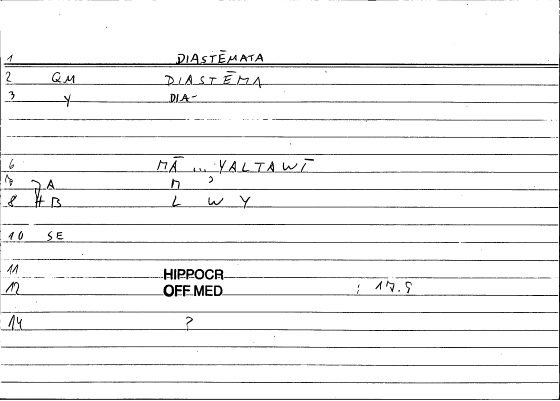 1 DIASTĒMATA
2 QM DIASTĒMA
3 Y DIA-
6 MĀ ... YALTAWĪ
7 A M ɔ
8 B L W Y
10 SE
11 HIPPOCR
12 OFF MED : 17.9
14 ?